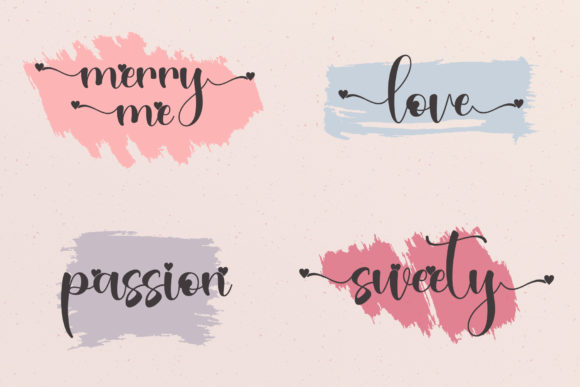 merry
me
love
passion
sweety